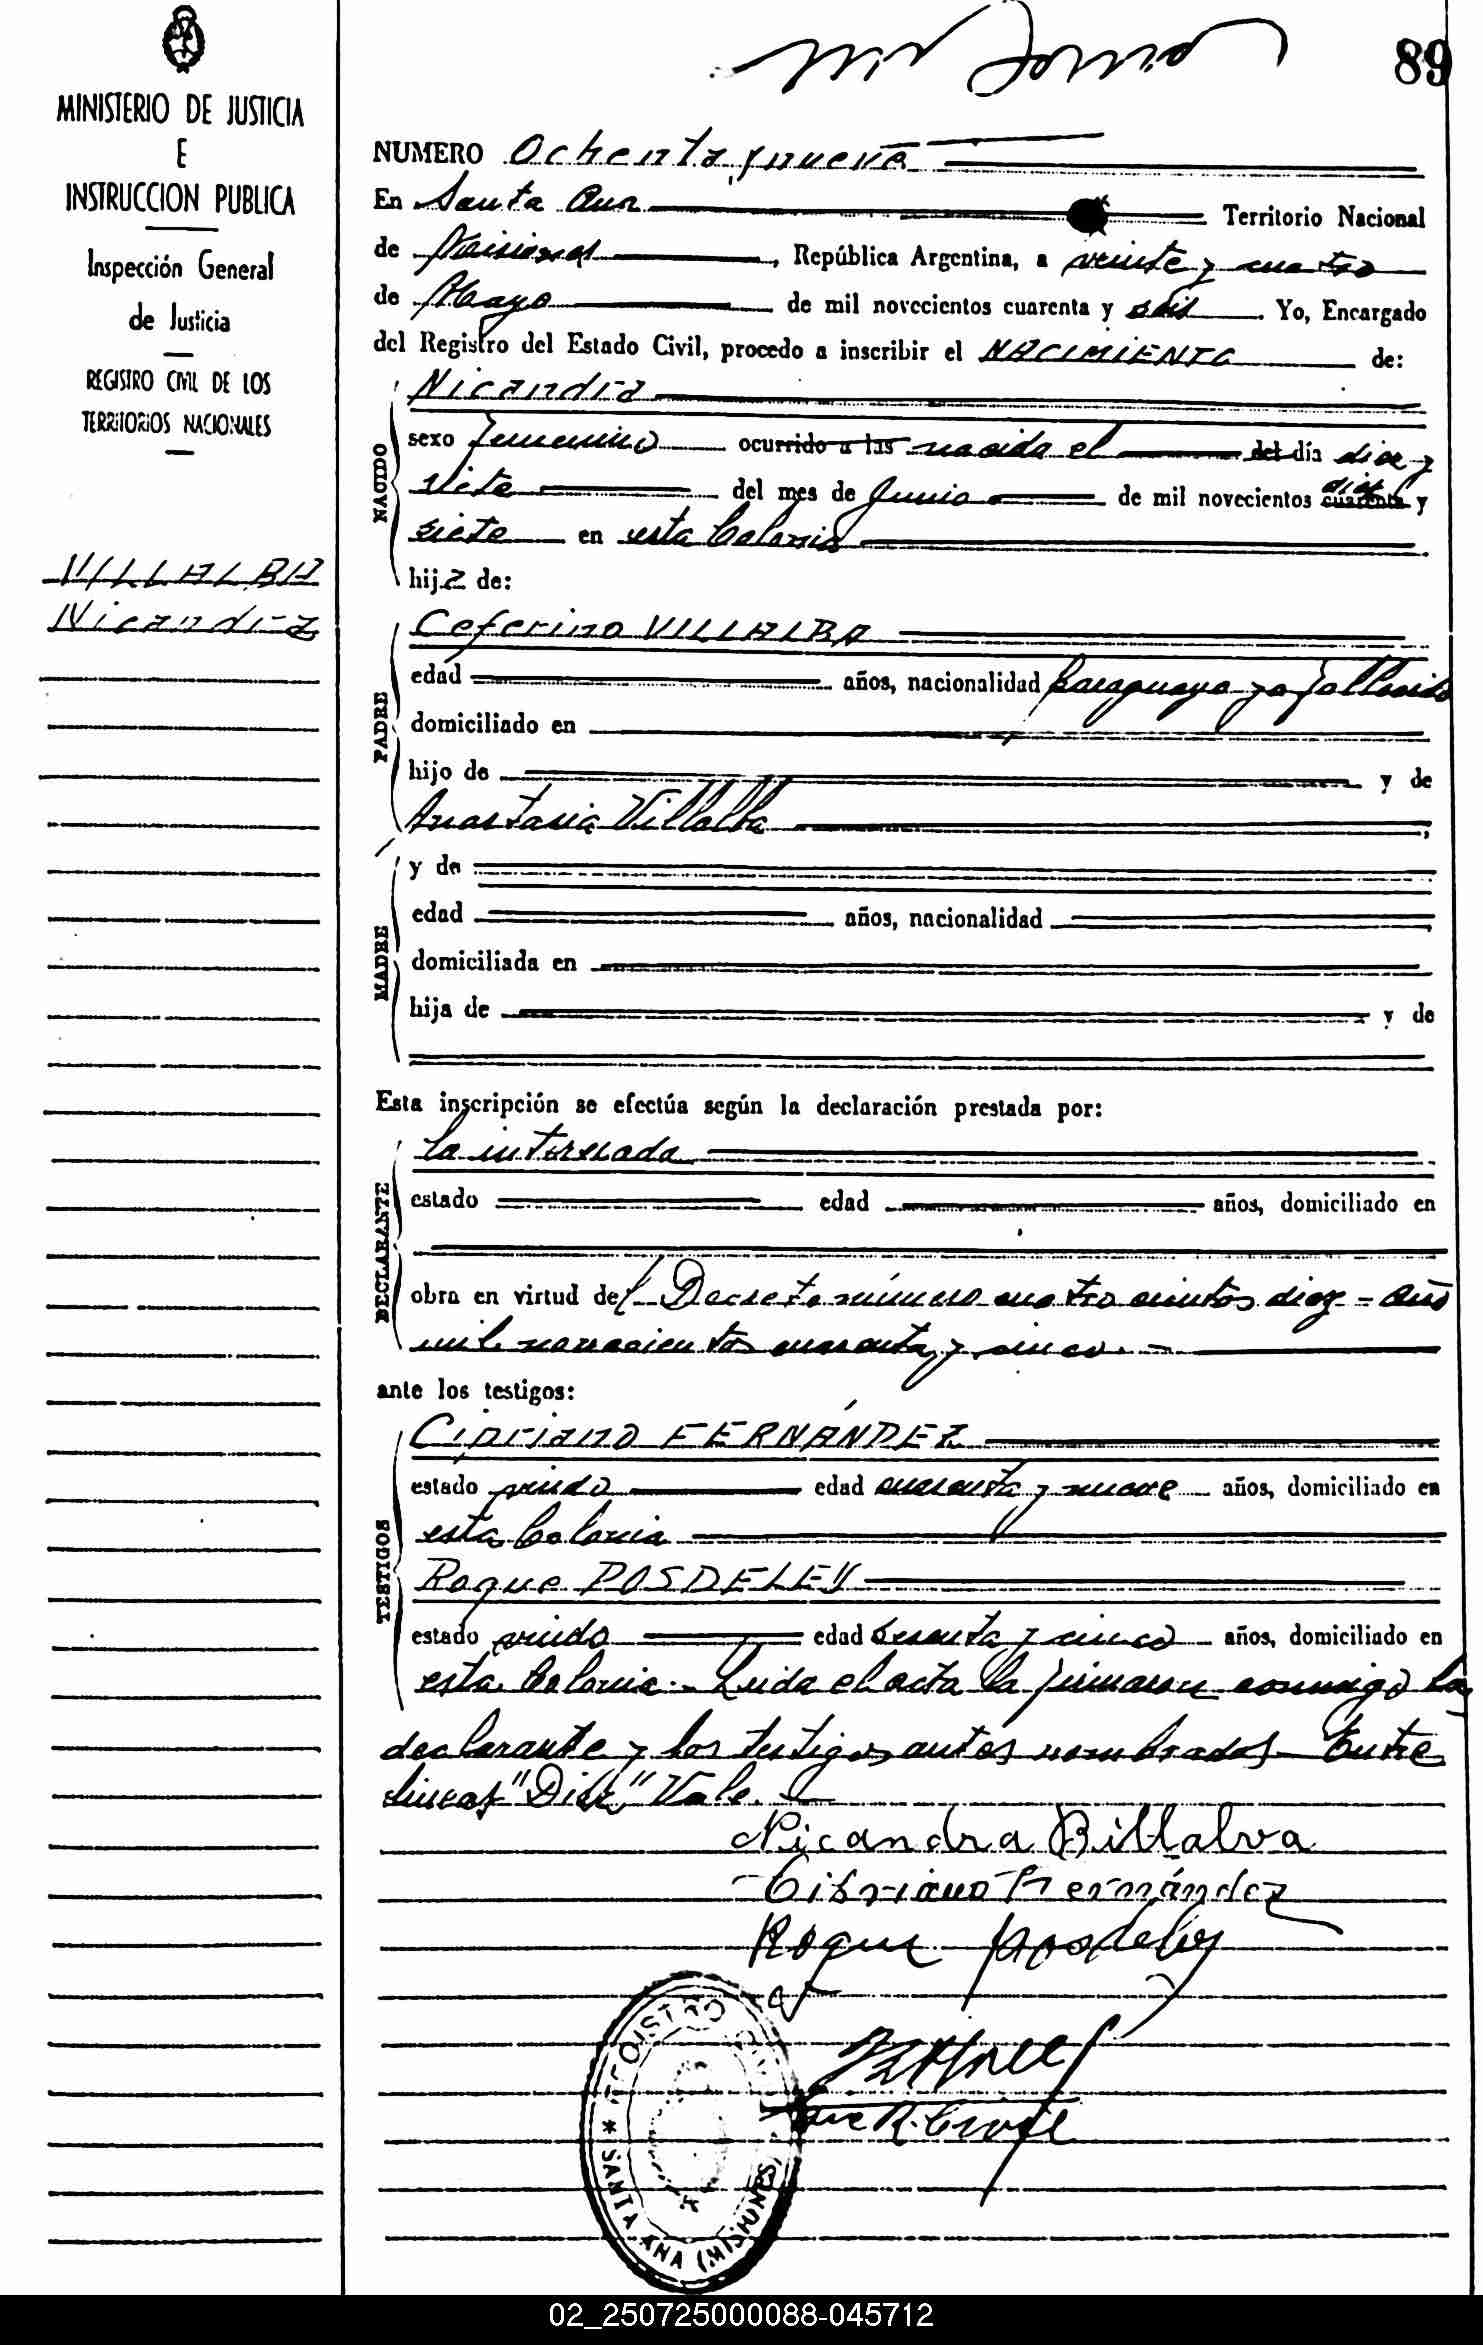 89
MINISTERIO DE JUSTICIA
E
INSTRUCCION PUBLICA
Inspección General
de Justicia
REGISTRO CIVIL DE LOS
TERRITORIOS NACIONALES
VILLALBA
Nicandra
NUMERO Ochenta y nueve
En Santa Ana Territorio Nacional
de Misiones, República Argentina, a veinte y cuatro
de Mayo de mil novecientos cuarenta y seis. Yo, Encargado
del Registro del Estado Civil, procedo a inscribir el NACIMIENTO de:
NACIDO
Nicandra
sexo femenino ocurrido a las nacida el del día diez y
siete del mes de Junio de mil novecientos cuarenta diez y
siete en esta Colonia
hija de:
PADRE
Ceferino VILLALBA
edad años, nacionalidad paraguaya ya fallecido
domiciliado en
hijo de y de
Anastasia Villalba
MADRE
y de
edad años, nacionalidad
domiciliada en
hija de y de
Esta inscripción se efectúa según la declaración prestada por:
DECLARANTE
la interesada
estado edad años, domiciliado en
obra en virtud del Decreto número cuatro cientos diez - año
mil novecientos cuarenta y cinco.-
ante los testigos:
TESTIGOS
Cipriano FERNÁNDEZ
estado viudo edad cuarenta y nueve años, domiciliado en
esta Colonia
Roque POSDELEY
estado viudo edad sesenta y cinco años, domiciliado en
esta Colonia.- Leida el acta la firmaron conmigo la
declarante y los testigos antes nombrados - Entre
lineas "Diez" Vale.
Nicandra Billalva
Cibriano Fernández
Roque Posdeley
REGISTRO CIVIL
* SANTA ANA (MISIONES)
02_250725000088-045712